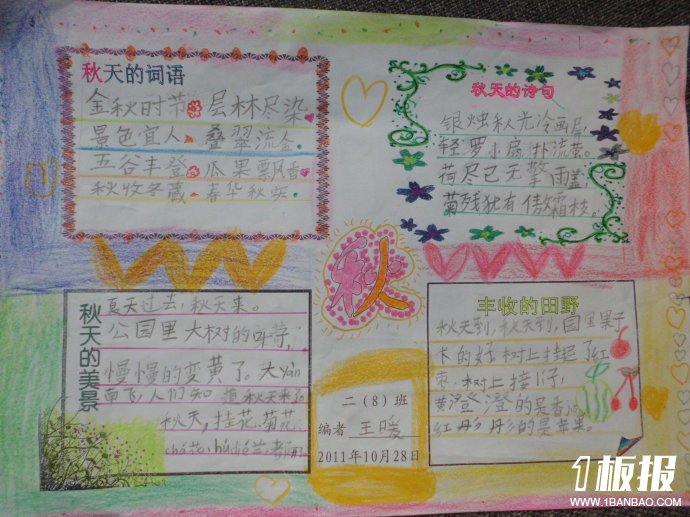 秋天的词语
金秋时节 层林尽染
景色宜人 叠翠流金
五谷丰登 瓜果飘香
秋收冬藏 春华秋实
秋天的诗句
银烛秋光冷画屏
轻罗小扇扑流萤。
荷尽已无擎雨盖
菊残犹有傲霜枝。
秋
秋天的美景
夏天过去,秋天来。
公园里大树的叶子,
慢慢的变黄了。大yàn
南飞,人们知道秋天来了
秋天,桂花、菊花、
二(8)班
编者 王暖
2011年10月28日
丰收的田野
秋天到,秋天到,园里果子
树上挂起了红
枣,树上接
黄澄澄的是香
红彤彤的是苹果。
1板报
WWW.1BANBAO.COM